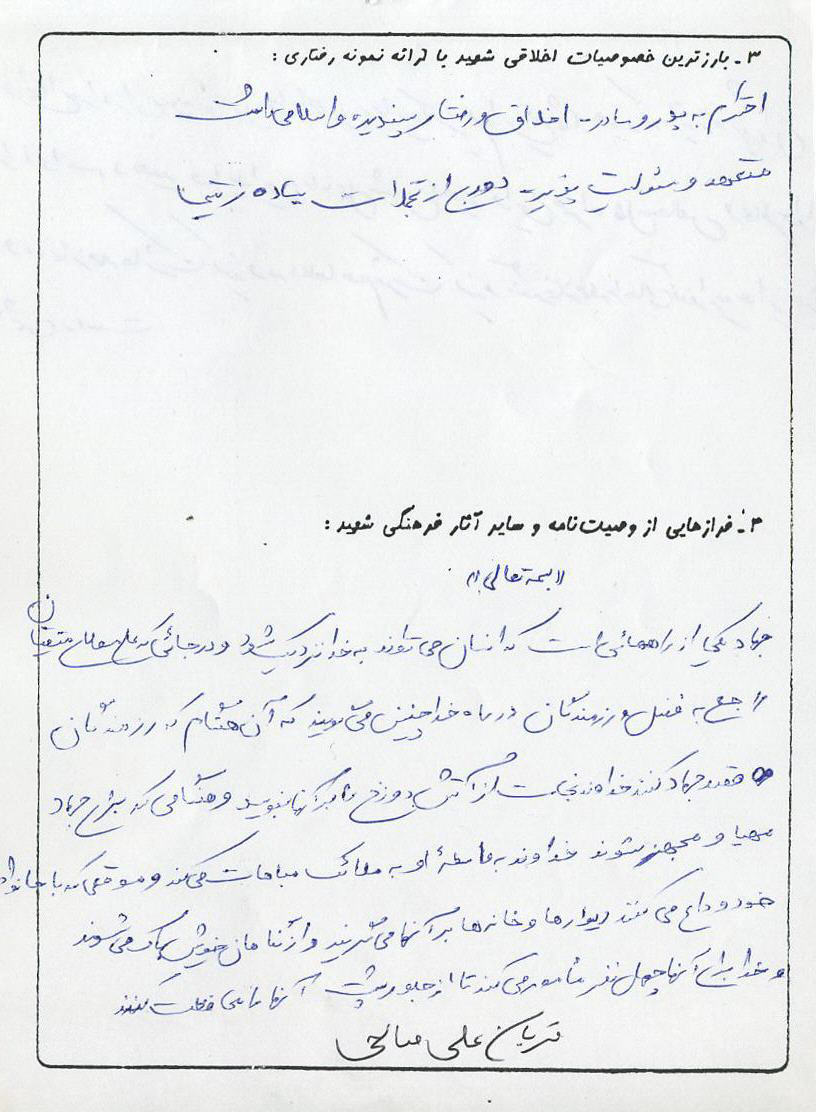 ۳ـ بارزترین خصوصیات اخلاقی شهید با ارائه نمونه رفتاری :
احترام به پدر و مادر ـ اخلاق و رفتار پسندیده و اسلامی داشت
متعهد و مسئولیت پذیر ـ دوری از تجملات ساده زیستی
۴ـ فرازهایی از وصیت‌نامه و سایر آثار فرهنگی شهید :
«بسمه تعالی»
جهاد یکی از راههائی است که انسان می تواند به خدا نزدیک شود و در جائی که علی متقیان
راجع به فضل رزمندگان در راه خدا چنین می گویند که آن هنگام که رزمندگان
قصد جهاد کنند خداوند نجات از آتش دوزخ را بر آنها بنویسد و هنگامی که برای جهاد
مهیا و مجهز شوند خداوند به واسطهٔ او به ملائک مباهات می‌کند و موقعی که با خانواده
خود وداع می کنند دیوارها و خانه ها بر آنها می گریند و از گناهان خویش پاک می شوند
و خدا برای آنها چهل نفر مأمور می کند تا از جلو و پشت آنها را محافظت کنند
قربان علی صالحی